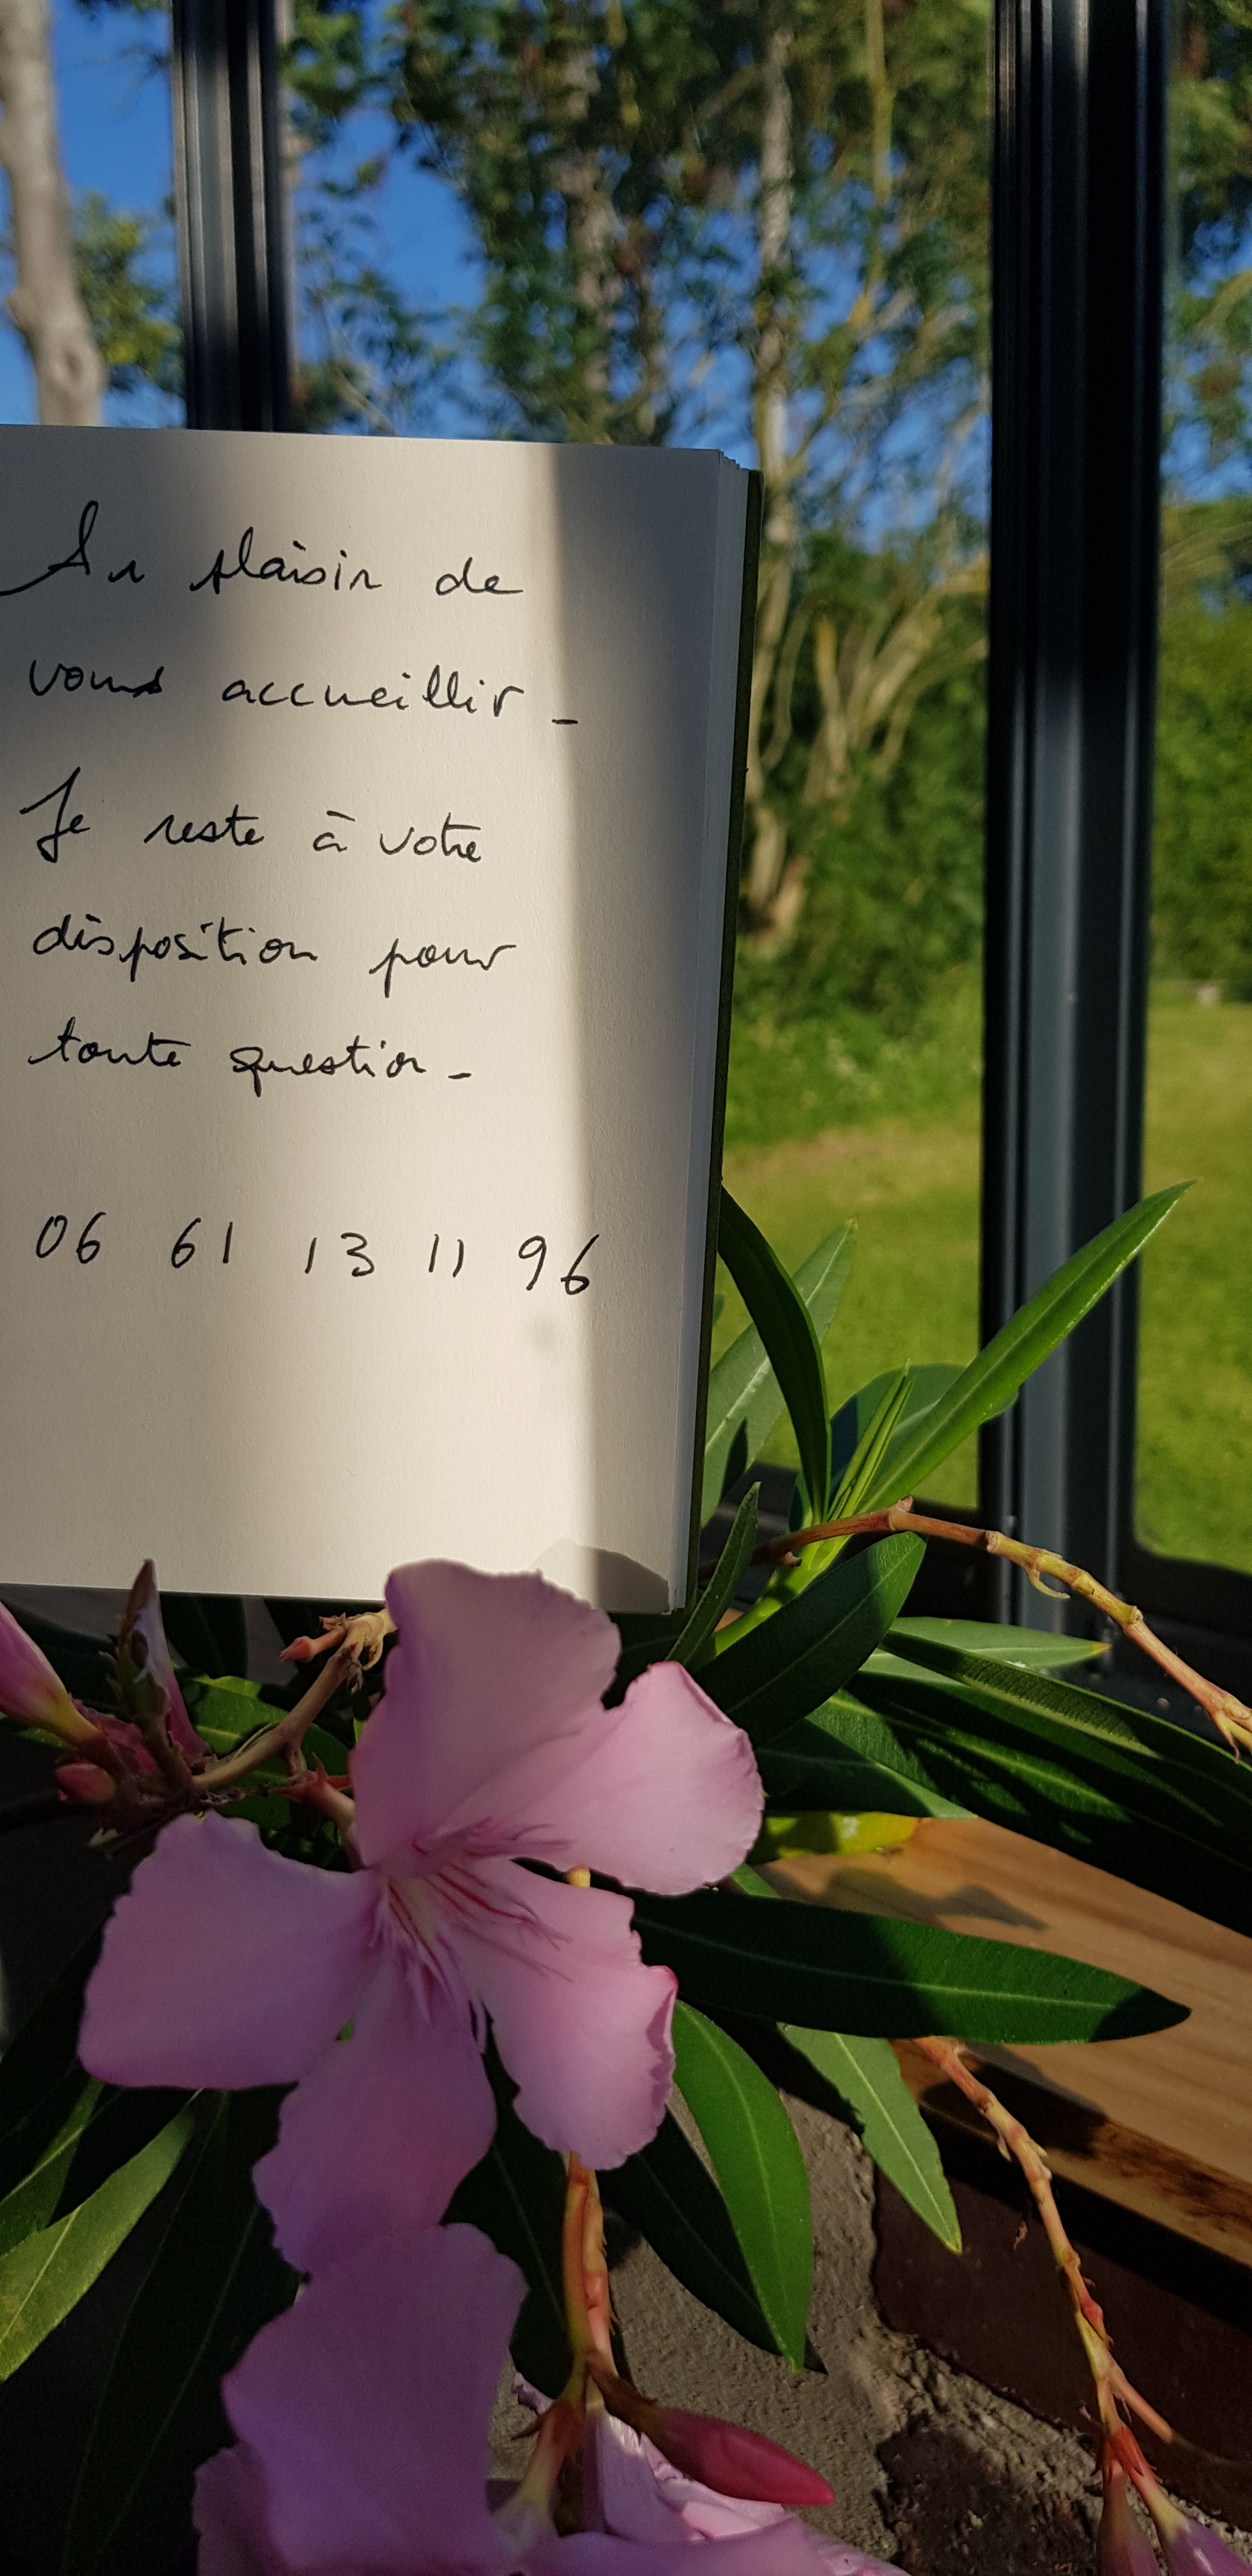 Au plaisir de
vous accueillir -
Je reste à votre
disposition pour
toute question -
06 61 13 11 96